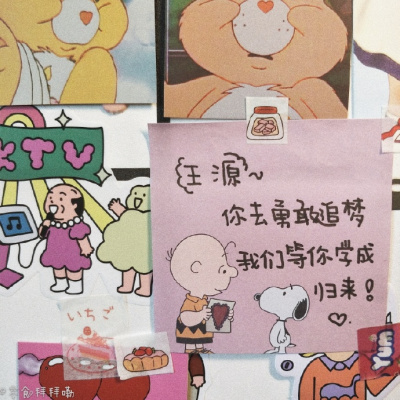 KTV
王源~
你去勇敢追梦
我们等你学成
归来!
いちご
Yun